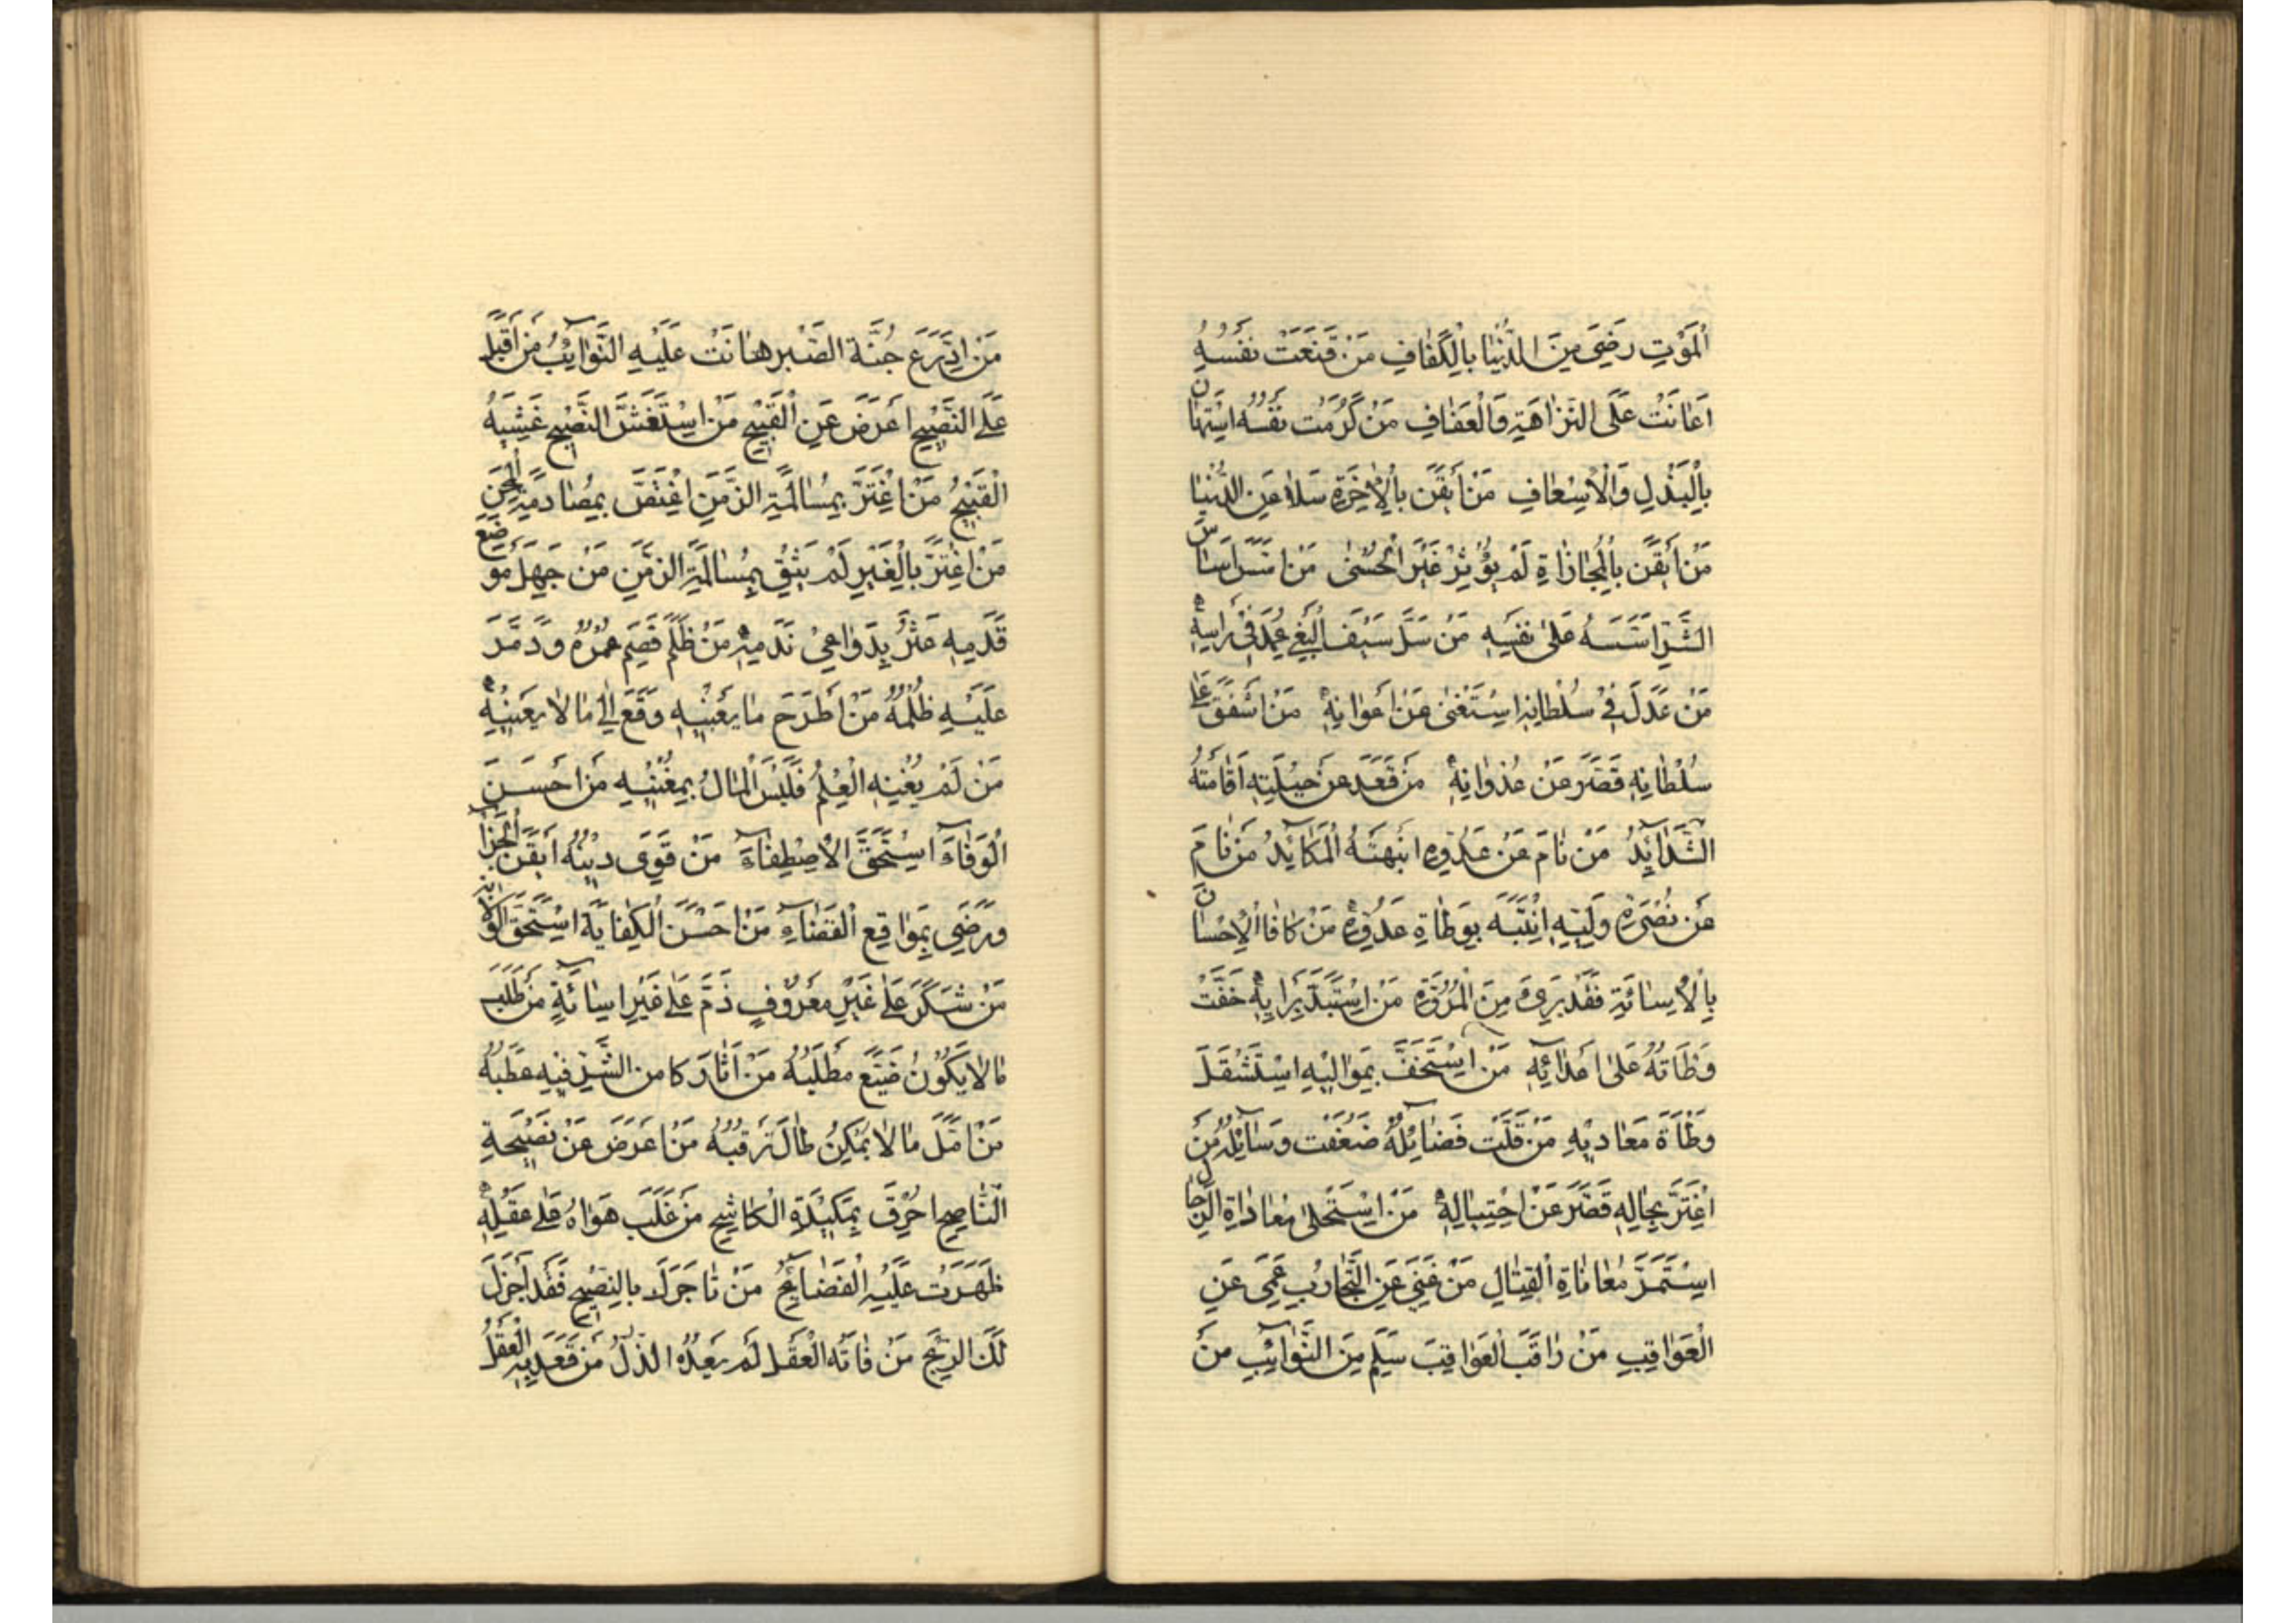 اَلْمَوْتِ رَضِيَ مِنَ الدُّنْيَا بِالْكَفَافِ مَنْ قَنَعَتْ نَفْسُهُ
اَعَانَتْ عَلَى النَّزَاهَةِ وَالْعَفَافِ مَنْ كَرُمَتْ نَفْسُهُ اسْتَهَانَ
بِالْبَذْلِ وَالْاِسْعَافِ مَنْ أَيْقَنَ بِالْاٰخِرَةِ سَلَا عَنِ الدُّنْيَا
مَنْ أَيْقَنَ بِالْمُجَازَاةِ لَمْ يُؤْثِرْ غَيْرَ الْحُسْنٰى مَنْ اَسَّسَ اَسَاسَ
الشَّرِّ اَسَّسَهُ عَلٰى نَفْسِهِ مَنْ سَلَّ سَيْفَ الْبَغْيِ غُمِدَ فِي رَاْسِهِ
مَنْ عَدَلَ فِي سُلْطَانِهِ اسْتَغْنٰى عَنْ اَعْوَانِهِ مَنْ اَشْفَقَ عَلٰى
سُلْطَانِهِ قَصَّرَ عَنْ عُدْوَانِهِ مَنْ قَعَدَ عَنْ حِيلَتِهِ اَقَامَتْهُ
الشَّدَائِدُ مَنْ نَامَ عَنْ عَدُوِّهِ انْبَهَتْهُ الْمَكَائِدُ مَنْ نَامَ
عَنْ نُصْرَةِ وَلِيِّهِ اِنْتَبَهَ بِوَطْاَةِ عَدُوِّهِ مَنْ كَافَا الْاِحْسَانَ
بِالْاِسَائَةِ فَقَدْ بَرِئَ مِنَ الْمُرُوَّةِ مَنِ اسْتَبَدَّ بِرَايِهِ خَفَّتْ
وَطْاَتُهُ عَلٰى اَعْدَائِهِ مَنْ اسْتَخَفَّ بِمَوَالِيهِ اسْتَثْقَلَ
وَطْاَةَ مَعَادِيهِ مَنْ قَلَّتْ فَضَائِلُهُ ضَعُفَتْ وَسَائِلُهُ مَنْ
اغْتَرَّ بِحَالِهِ قَصَّرَ عَنْ احْتِيَالِهِ مَنْ اسْتَحْلٰى مُعَادَاةَ الرِّجَالِ
اسْتَمَرَّ مُعَانَاةِ الْقِتَالِ مَنْ غَنِيَ عَنِ التَّجَارُبِ عَمِيَ عَنِ
الْعَوَاقِبِ مَنْ رَاقَبَ الْعَوَاقِبَ سَلِمَ مِنَ النَّوَائِبِ مَنْ
مَنِ ادَّرَعَ جُنَّةَ الصَّبْرِ هَانَتْ عَلَيْهِ النَّوَائِبُ مَنْ اَقْبَلَ
عَلَى النَّصِيْحِ اَعْرَضَ عَنِ الْقَبِيْحِ مَنِ اسْتَغَشَّ النَّصِيْحَ غَشِيَهُ
الْقَبِيْحُ مَنْ اغْتَرَّ بِمُسَالَمَةِ الزَّمَنِ اغْتَصَّ بِمُصَادَمَةِ الْمِحَنِ
مَنْ اعْتَبَرَ بِالْغِيَرِ لَمْ يَثِقْ بِمُسَالَمَةِ الزَّمَنِ مَنْ جَهِلَ مَوْضِعَ
قَدَمِهِ عَثَرَ بِدَوَاعِيْ نَدَمِهِ مَنْ ظَلَمَ قَصَمَ عُمْرَهُ وَدَمَّرَ
عَلَيْهِ ظُلْمُهُ مَنْ اطَّرَحَ مَا يَعْنِيْهِ وَقَعَ اِلٰى مَا لَا يَعْنِيْهِ
مَنْ لَمْ يُغْنِهِ الْعِلْمُ فَلَيْسَ الْمَالُ بِمُغْنِيْهِ مَنْ اَحْسَنَ
الْوَفَاءَ اسْتَحَقَّ الْاِصْطِفَاءَ مَنْ قَوِيَ دِيْنُهُ اَيْقَنَ بِالْجَزَاءِ
وَرَضِيَ بِمَوَاقِعِ الْقَضَاءِ مَنْ اَحْسَنَ الْكِفَايَةَ اسْتَحَقَّ الْوِلَايَةَ
مَنْ شَكَرَ عَلٰى غَيْرِ مَعْرُوْفٍ ذَمَّ عَلٰى غَيْرِ اسَائَةٍ مَنْ طَلَبَ
مَا لَا يَكُوْنُ ضَيَّعَ مَطْلَبُهُ مَنْ اَثَارَ كَامِنَ الشَّرِّ فِيْهِ عَطَبُهُ
مَنْ اَمَّلَ مَا لَا يُمْكِنُ طَالَ تَرَقُّبُهُ مَنْ اَعْرَضَ عَنْ نَصِيْحَةِ
النَّاصِحِ احْرِقَ بِمَكِيْدَةِ الْكَاشِحِ مَنْ غَلَبَ هَوَاهُ عَلٰى عَقْلِهِ
ظَهَرَتْ عَلَيْهِ الْفَضَائِحُ مَنْ تَاجَرَكَ بِالنُّصْحِ فَقَدْ اَجْزَلَ
لَكَ الرِّبْحَ مَنْ فَاتَهُ الْعَقْلُ لَمْ يَعْدُهُ الذُّلُّ مَنْ قَعَدَ بِهِ الْعَقْلُ